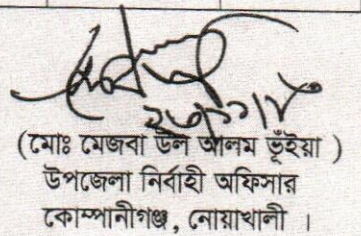 (মোঃ মেজবা উল আলম ভূঁইয়া )
উপজেলা নির্বাহী অফিসার
কোম্পানীগঞ্জ, নোয়াখালী ।